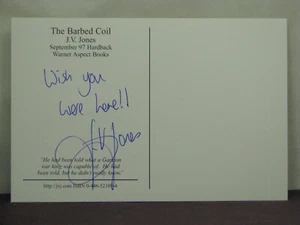 The Barbed Coil
J.V. Jones
September 97 Hardback
Warner Aspect Books
Wish you
were here!!
J.V. Jones
"He had been told what a Garizon
war king was capable of. He had
been told, but he didn't really know."